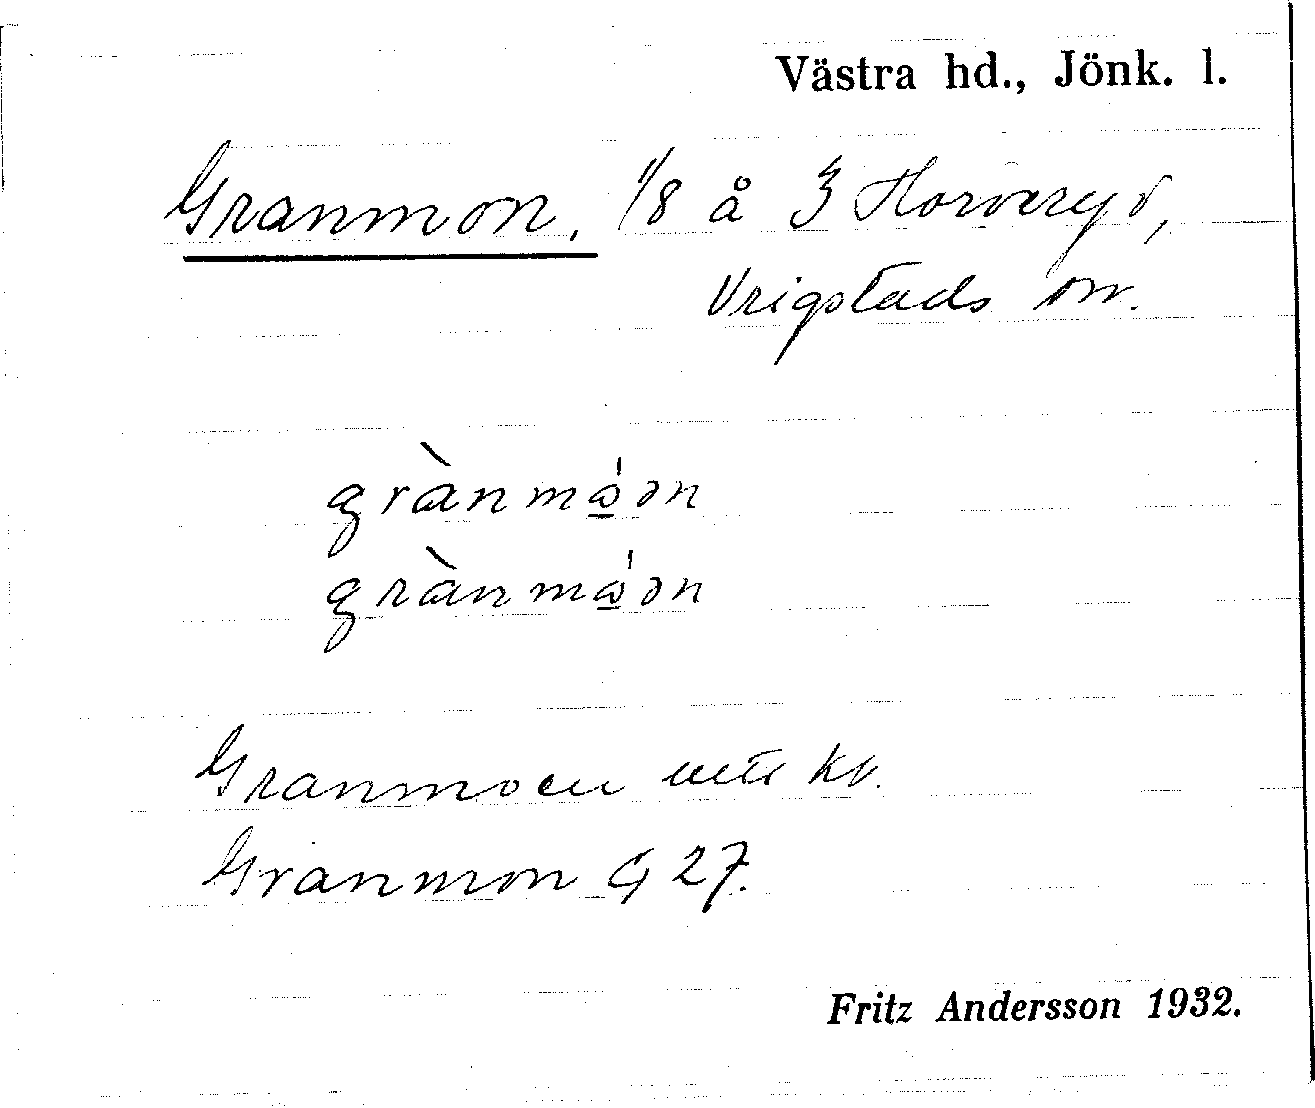 Västra hd., Jönk. l.
Granmon, 1/8 å 3 Horveryd,
Vrigstads sn.
grànmǻən
grànmǻən
Granmoen uttt kv.
Granmon G 27.
Fritz Andersson 1932.